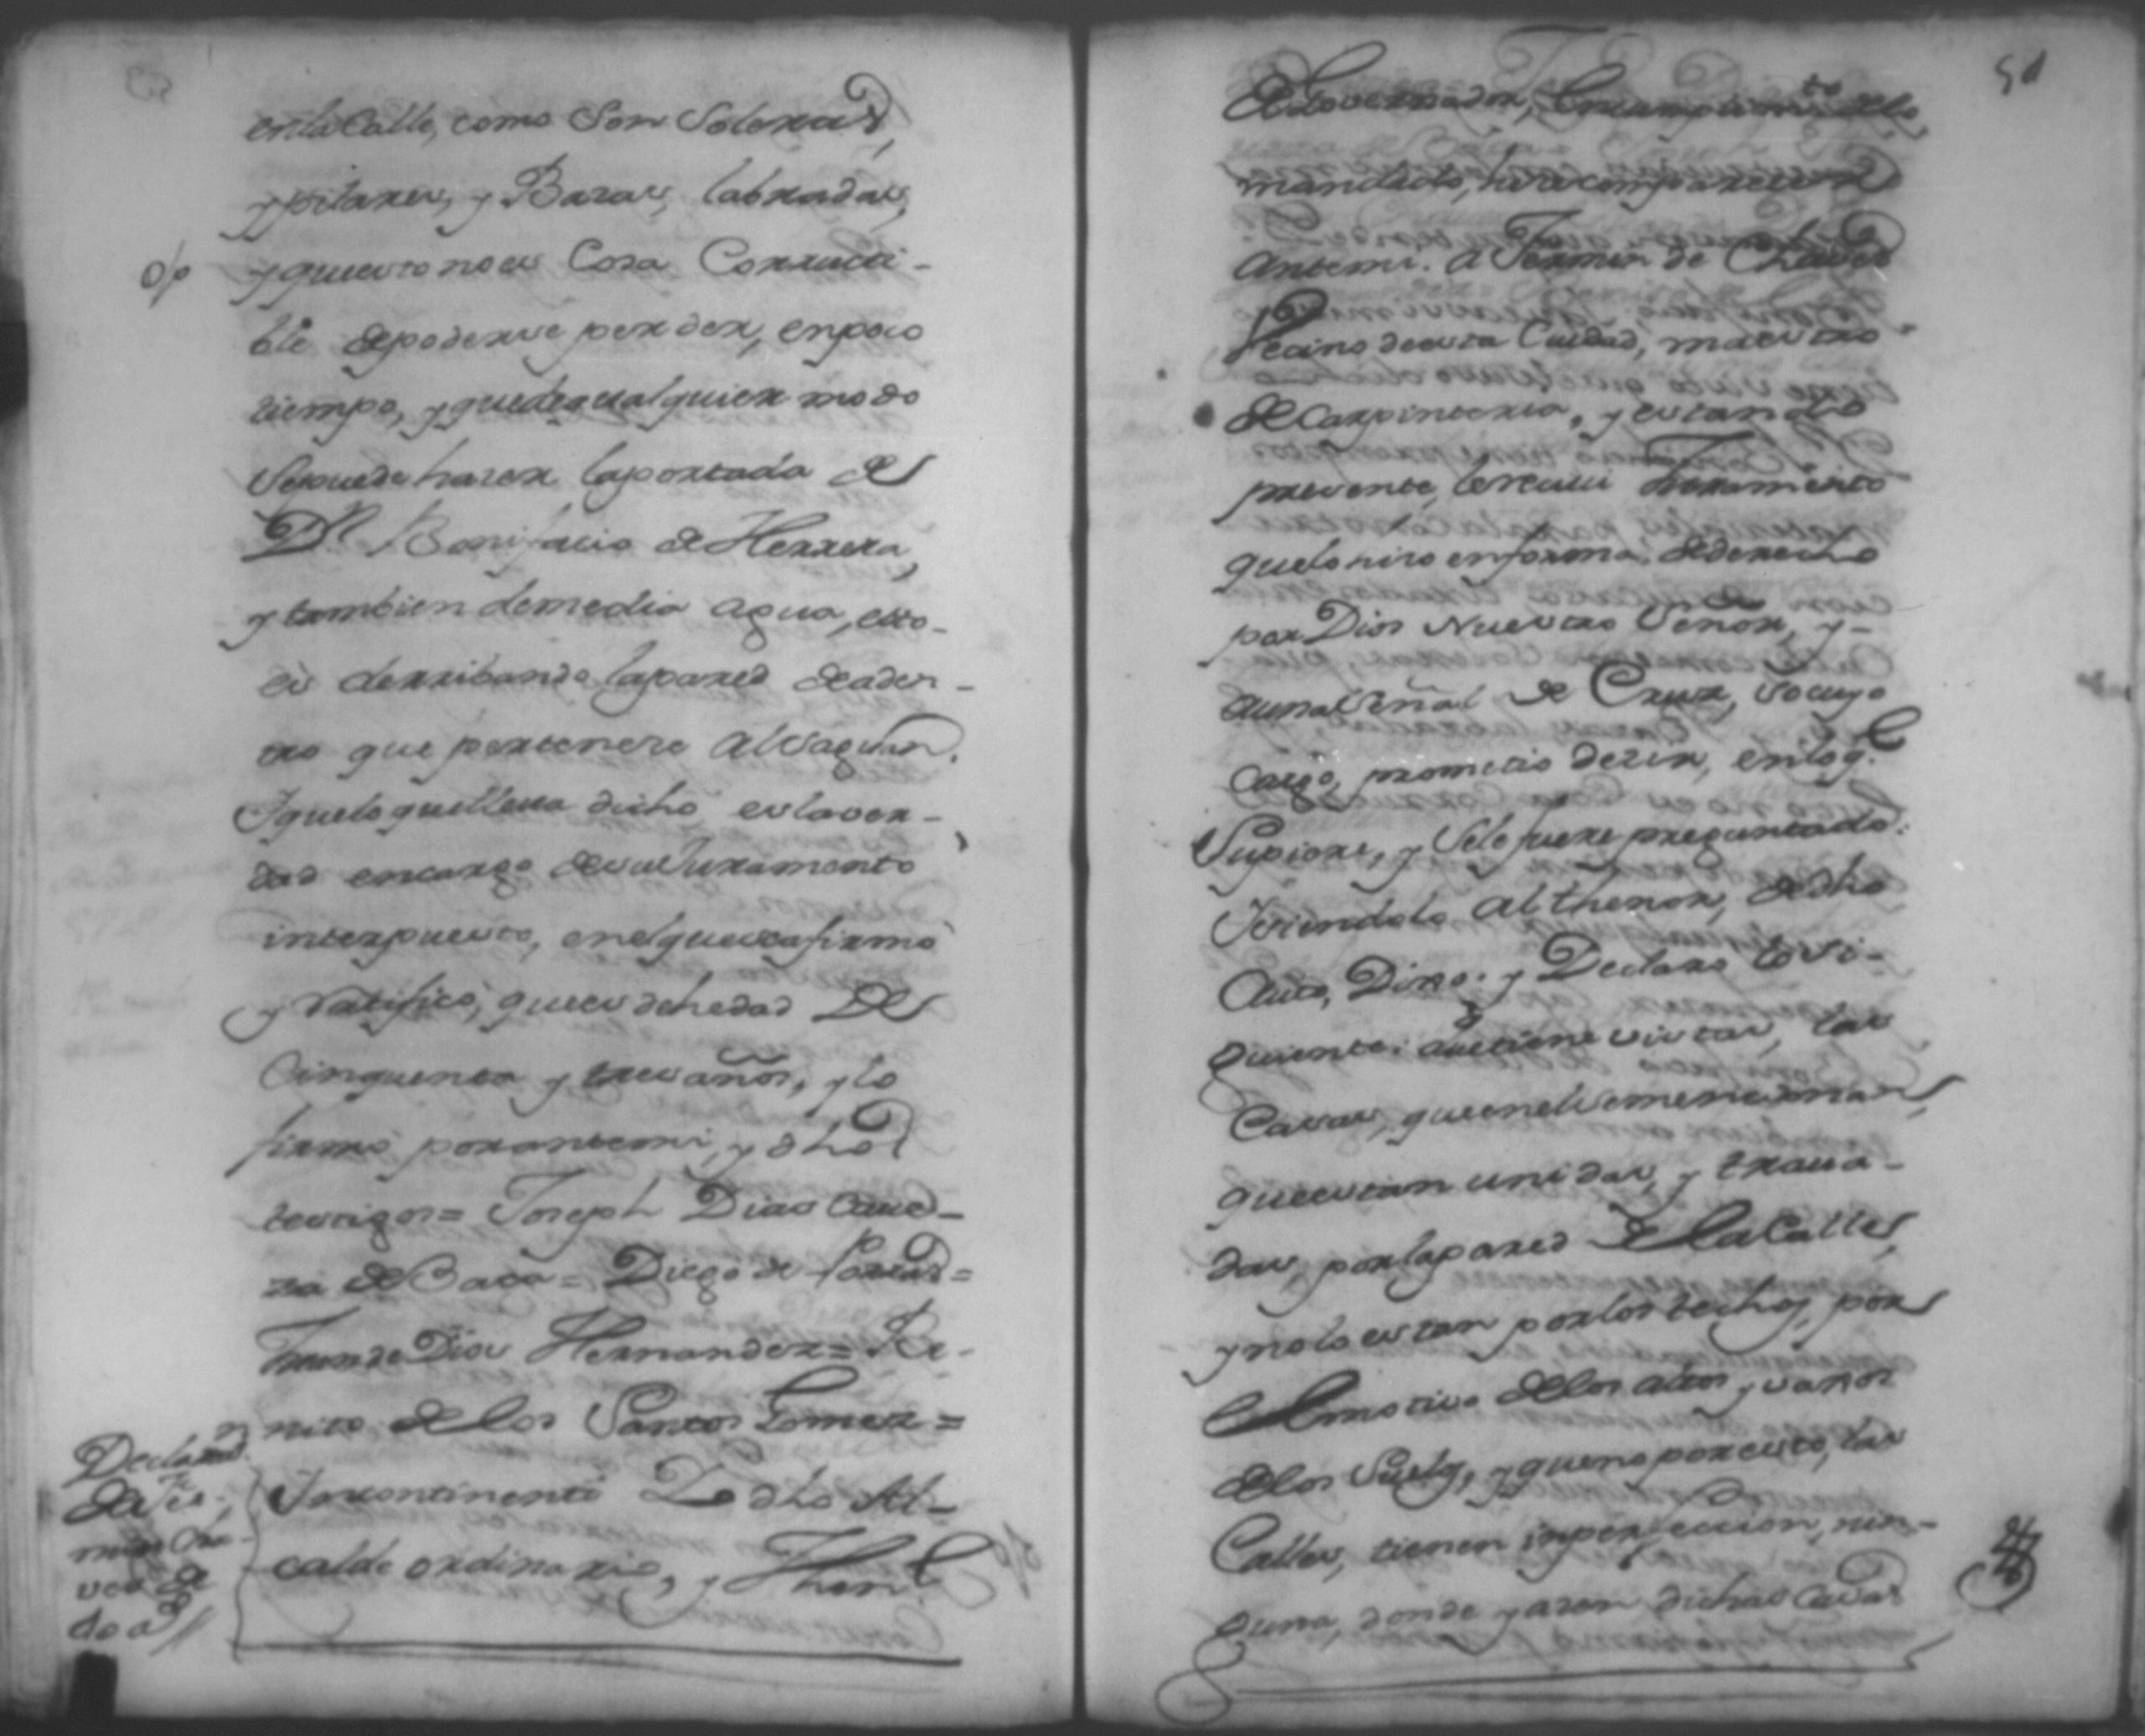 en la Calle, como Son Soleras,
y pilares, y Bazas, labradas,
y que esto no es Cosa Corructi-
ble de poderse perder, en poco
tiempo, y que de qualquier modo
Se puede hazer la portada de
Dn Bonifacio de Herrera,
y tambien de media agua, esto-
es derribando la pared de aden-
tro que pertenece al Saguan.
Y que lo que lleva dicho es la ver-
dad en cargo de su Juramento
interpuesto, en el que se afirmó
y ratificó, que es de hedad de
Cinquenta y tres años, y lo
firmó por ante mi, y dhos
testigos = Joseph Dias Caue-
za de Baca = Diego de =
Juan de Dios Hernandez = Be-
nito de los Santos Gomez =
Yncontinenti Yo dho Al-
calde ordinario, y Thente
Declaraon
de Fer-
min Cha-
ves de
do a
51
de Governador, En cumplimto de lo
mandado, hize comparecer
ante mi. a Fermin de Chaves
Vecino de esta Ciudad, maestro
de Carpinteria, y estando
presente, le recivi Juramento
que lo hizo en forma de derecho
por Dios Nuestro Señor, y-
a una Señal de Cruz, so cuyo
cargo, prometio dezir, en lo qe
Supiere, y Sele fuere preguntado:
Y siendolo al thenor, de dho
Auto, Dixo: y Declaro lo si-
guiente: que tiene vistas, las
Casas, que en el se mencionan
que estan unidas, y traua-
das, por la pared de la Calle,
y no lo estan por los techos, por
el motivo de los altos, y vajos
de los Suelos, y que no por esto, las
Calles, tienen inperfeccion, nin-
guna, donde yazen dichas Casas